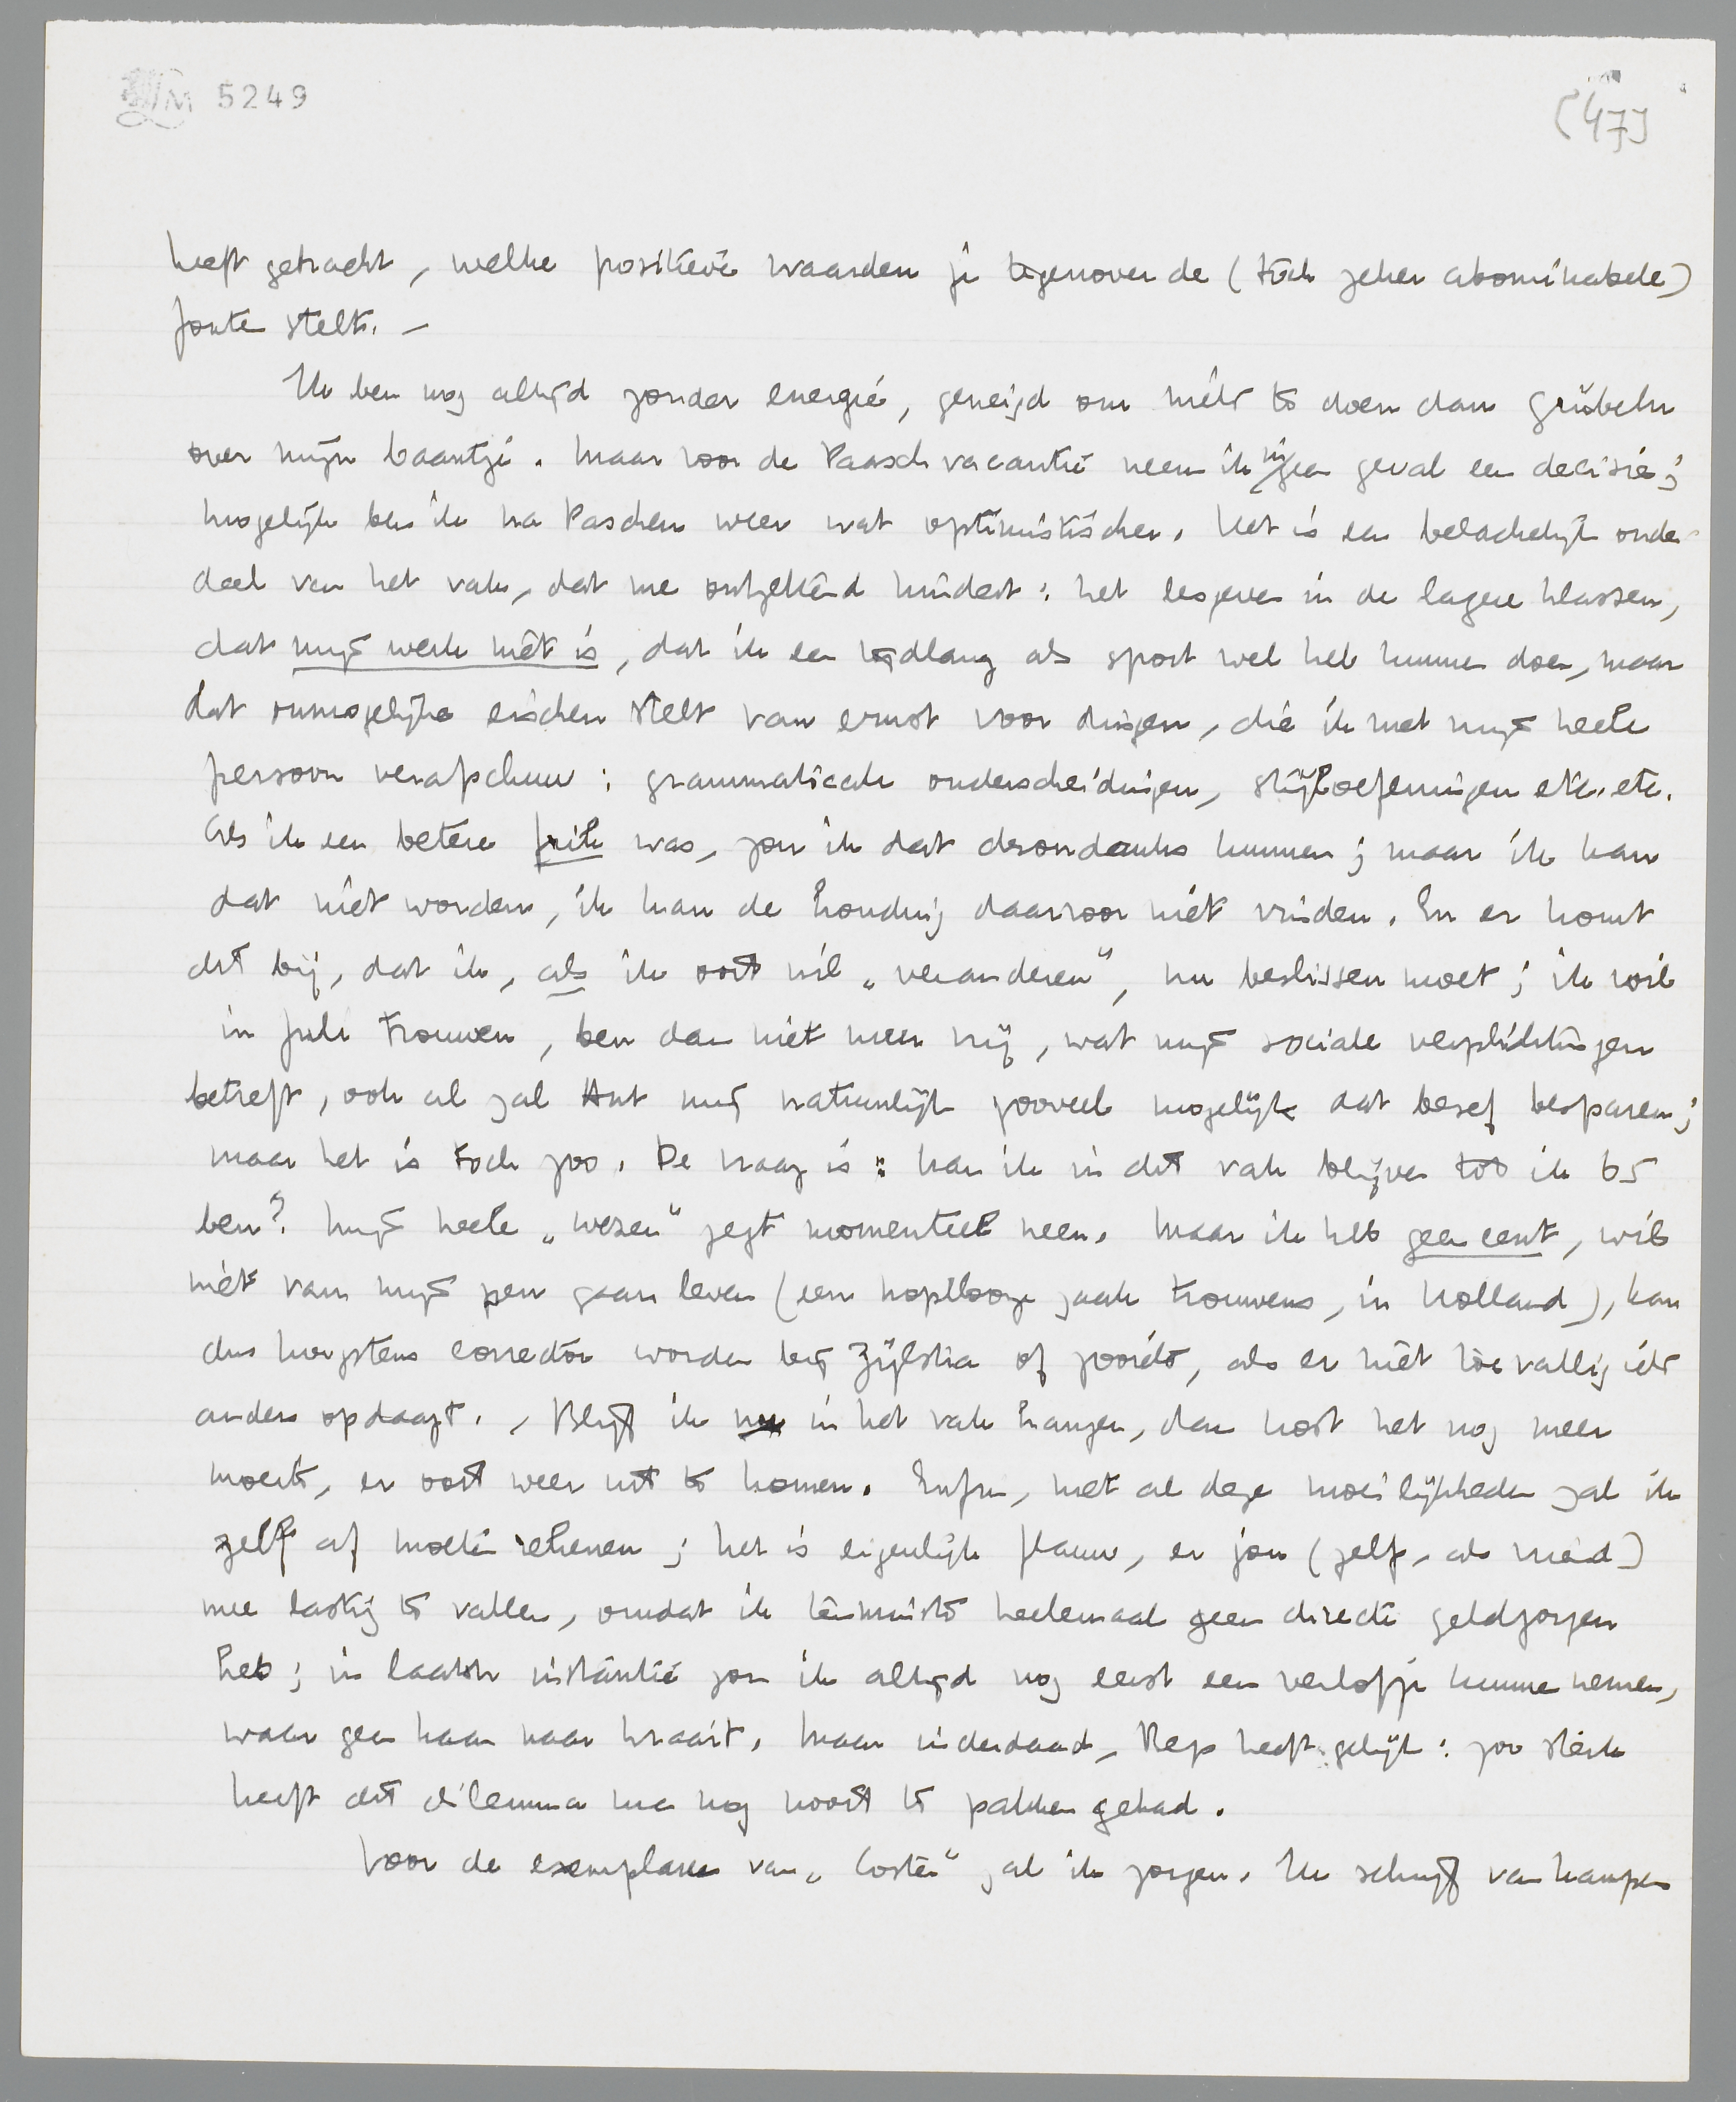 LM 5249
(47)
heeft getracht, welke positieve waarden je tegenover de (toch zeker abominabele)
fouten stelt. —
Ik ben nog altijd zonder energie, geneigd om niets te doen dan grübeln
over mijn baantje. Maar voor de Paaschvacantie neem ik in geen geval een decisie;
mogelijk ben ik na Paschen weer wat optimistischer. Het is een belachelijk onder-
deel van het vak, dat me ontzettend hindert: het lesgeven in de lagere klassen,
dat mijn werk niet is, dat ik een tijdlang als sport wel heb kunnen doen, maar
dat onmogelijke eischen stelt van ernst voor dingen, die ik met mijn heele
persoon verafschuw: grammaticale onderscheidingen, stijloefeningen etc. etc.
Als ik een betere frik was, zou ik dat desondanks kunnen; maar ik kan
dat niet worden, ik kan de houding daarvoor niet vinden. En er komt
dit bij, dat ik, als ik ooit wil „veranderen", nu beslissen moet; ik wil
in Juli trouwen, ben dan niet meer vrij, wat mijn sociale verplichtingen
betreft, ook al zal Ant mij natuurlijk zooveel mogelijk dat besef besparen;
maar het is toch zoo. De vraag is: kan ik in dit vak blijven tot ik 65
ben? Mijn heele „wezen" zegt momenteel neen. Maar ik heb geen cent, wil
niet van mijn pen gaan leven (een hopelooze zaak trouwens, in Holland), kan
dus hoogstens corrector worden bij Zijlstra of zooiets, als er niet toevallig iets
anders opdaagt. , Blijf ik in het vak hangen, dan kost het nog meer
moeite, er ooit weer uit te komen. Enfin, met al deze moeilijkheden zal ik
zelf af moeten rekenen; het is eigenlijk flauw, er jou (zelf, als vriend)
mee lastig te vallen, omdat ik tenminste heelemaal geen directe geldzorgen
heb; in laatste instantie zou ik altijd nog eerst een verlofje kunnen nemen,
waar geen haan naar kraait. Maar inderdaad, Bep heeft gelijk: zoo sterk
heeft dit dilemma me nog nooit te pakken gehad.
Voor de exemplaren van „Coster" zal ik zorgen. Ik schrijf van Kampen